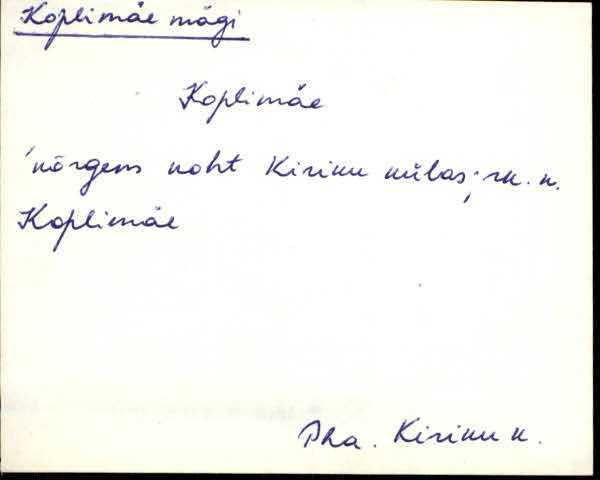 Koplimäe mägi
Koplimäe
'kõrgem koht Kiriku külas; rk. k.
Koplimäe
Pha. Kiriku k.